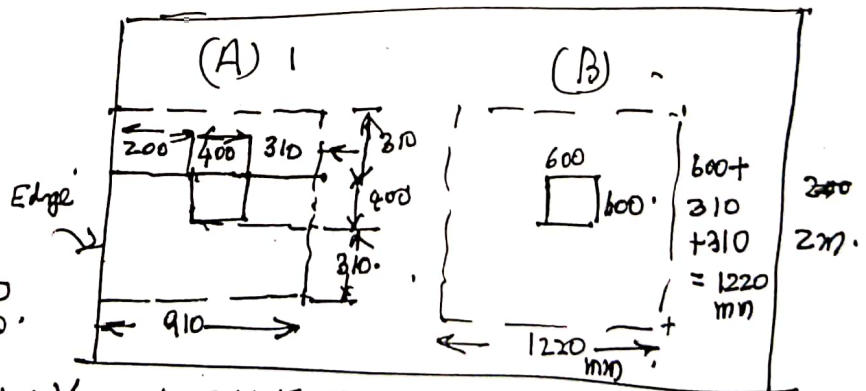 (A) 1
(B)
200 400 310
310
400
310.
Edge
910
600
600.
600+
310
+310
= 1220
mm
2m.
1220
mm